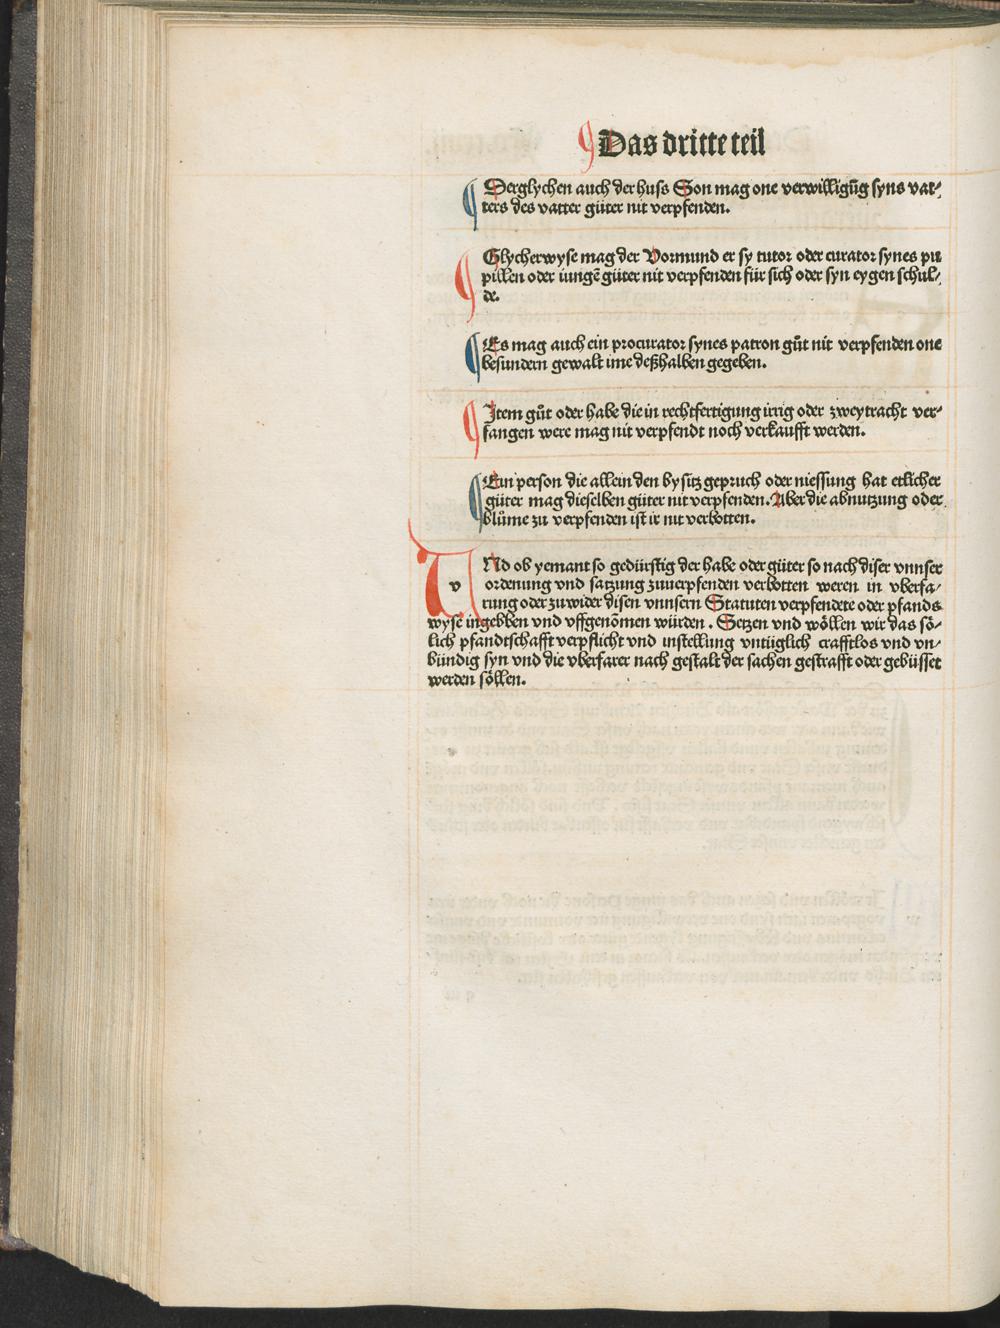 Das dritte teil
Derglychen auch der huſs Son mag one verwilligūg ſyns vat⸗
ters des vatter güter nit verpfenden.
Glycherwyſe mag der Vormund er ſy tutor oder curator ſynes pu
pillen oder iungē güter nit verpfenden für ſich oder ſyn eygen ſchul⸗
de.
Es mag auch ein procurator ſynes patron gůt nit verpfenden one
beſundern gewalt ime deßhalben gegeben.
Item gůt oder habe die in rechtfertigung irrig oder zweytracht ver⸗
fangen were mag nit verpfendt noch verkaufft werden.
Ein perſon die allein den byſitz gepruch oder nieſſung hat etlicher
güter mag dieſelben güter nit verpfenden. Aber die abnutzung oder
blůme zu verpfenden iſt ir nit verbotten.
VNd ob yemant ſo gedürſtig der habe oder güter ſo nach diſer vnnſer
v ordenung vnd ſatzung zuuerpfenden verbotten weren in vberfa⸗
rung oder zuwider diſen vnnſern Statuten verpfendete oder pfands
wyſe ingebben vnd vffgenōmen würden. Setzen vnd wöllen wir das ſö⸗
lich pfandtſchafft verpflicht vnd inſtellung vntüglich crafftlos vnd vn⸗
bündig ſyn vnd die vberfarer nach geſtalt der ſachen geſtrafft oder gebüſſet
werden ſöllen.